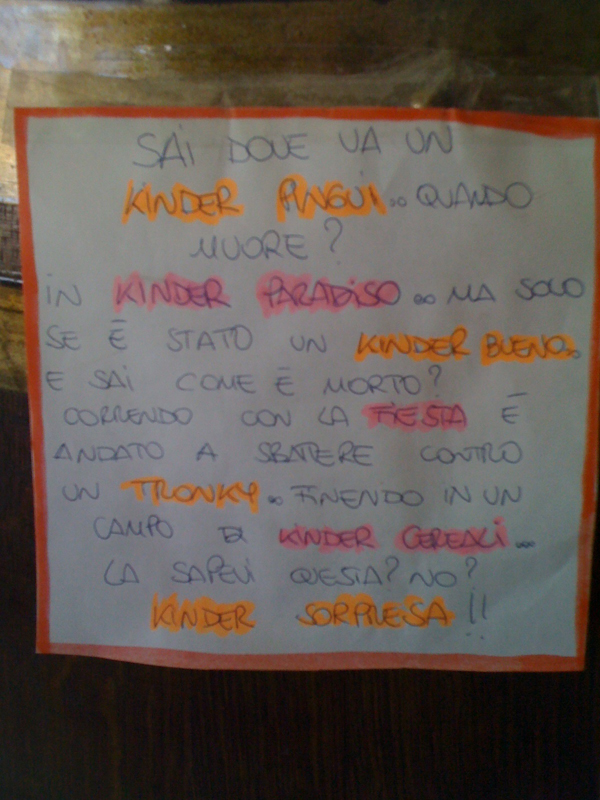 SAi DOVE VA UN
KiNDER PiNGUi.. QUANDO
MUORE?
iN KiNDER PARADiSO .. MA SOLO
SE È STATO UN KiNDER BUENO..
E SAi COME È MORTO?
CORRENDO CON LA FiESTA È
ANDATO A SBATTERE CONTRO
UN TRONKY.. FiNENDO iN UN
CAMPO Di KiNDER CEREALi...
LA SAPEVi QUESTA? NO?
KiNDER SORPRESA!!